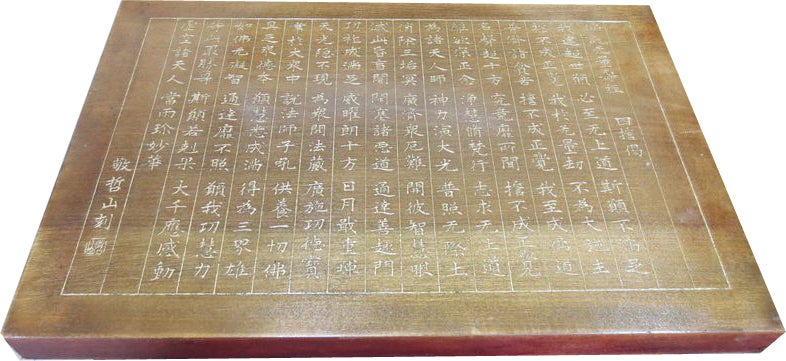 无量壽經 四誓偈
我建超世願 必至无上道 斯願不滿足
誓不成正覺 我於无量劫 不為大施主
普濟諸貧苦 誓不成正覺 我至成佛道
名聲超十方 究竟靡所聞 誓不成正覺
離欲深正念 淨慧脩梵行 志求无上道
為諸天人師 神力演大光 普照无際土
消除三垢冥 廣濟衆厄難 開彼智慧眼
滅此昏盲闇 閉塞諸惡道 通達善趣門
功祚成滿足 威曜朗十方 日月戢重暉
天光隱不現 為衆開法藏 廣施功德寶
常於大衆中 說法師子吼 供養一切佛
具足衆德本 願慧悉成滿 得為三界雄
如佛无礙智 通達靡不照 願我功慧力
等此最勝尊 斯願若剋果 大千應感動
虛空諸天人 當雨珍妙華
敬哲山刻